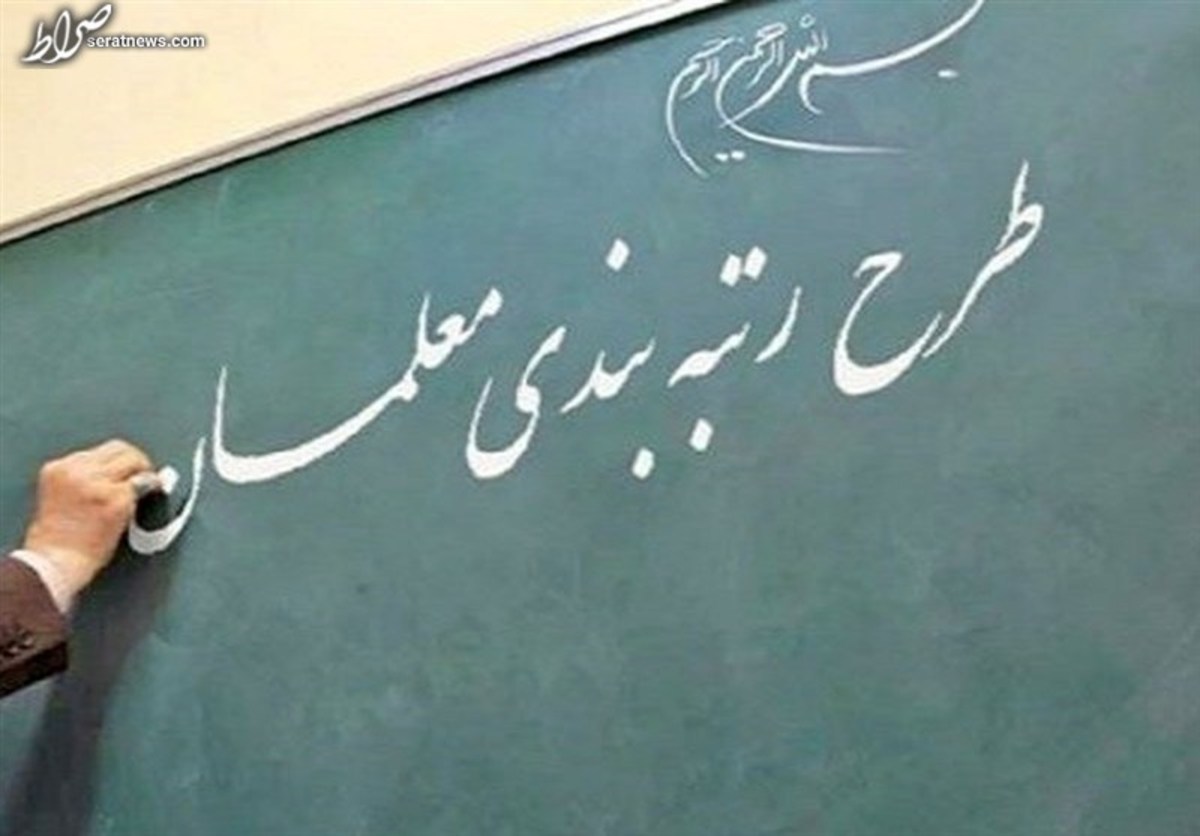 صراط
seratnews.com
بسم الله الرحمن الرحیم
طرح رتبه بندی معلمان